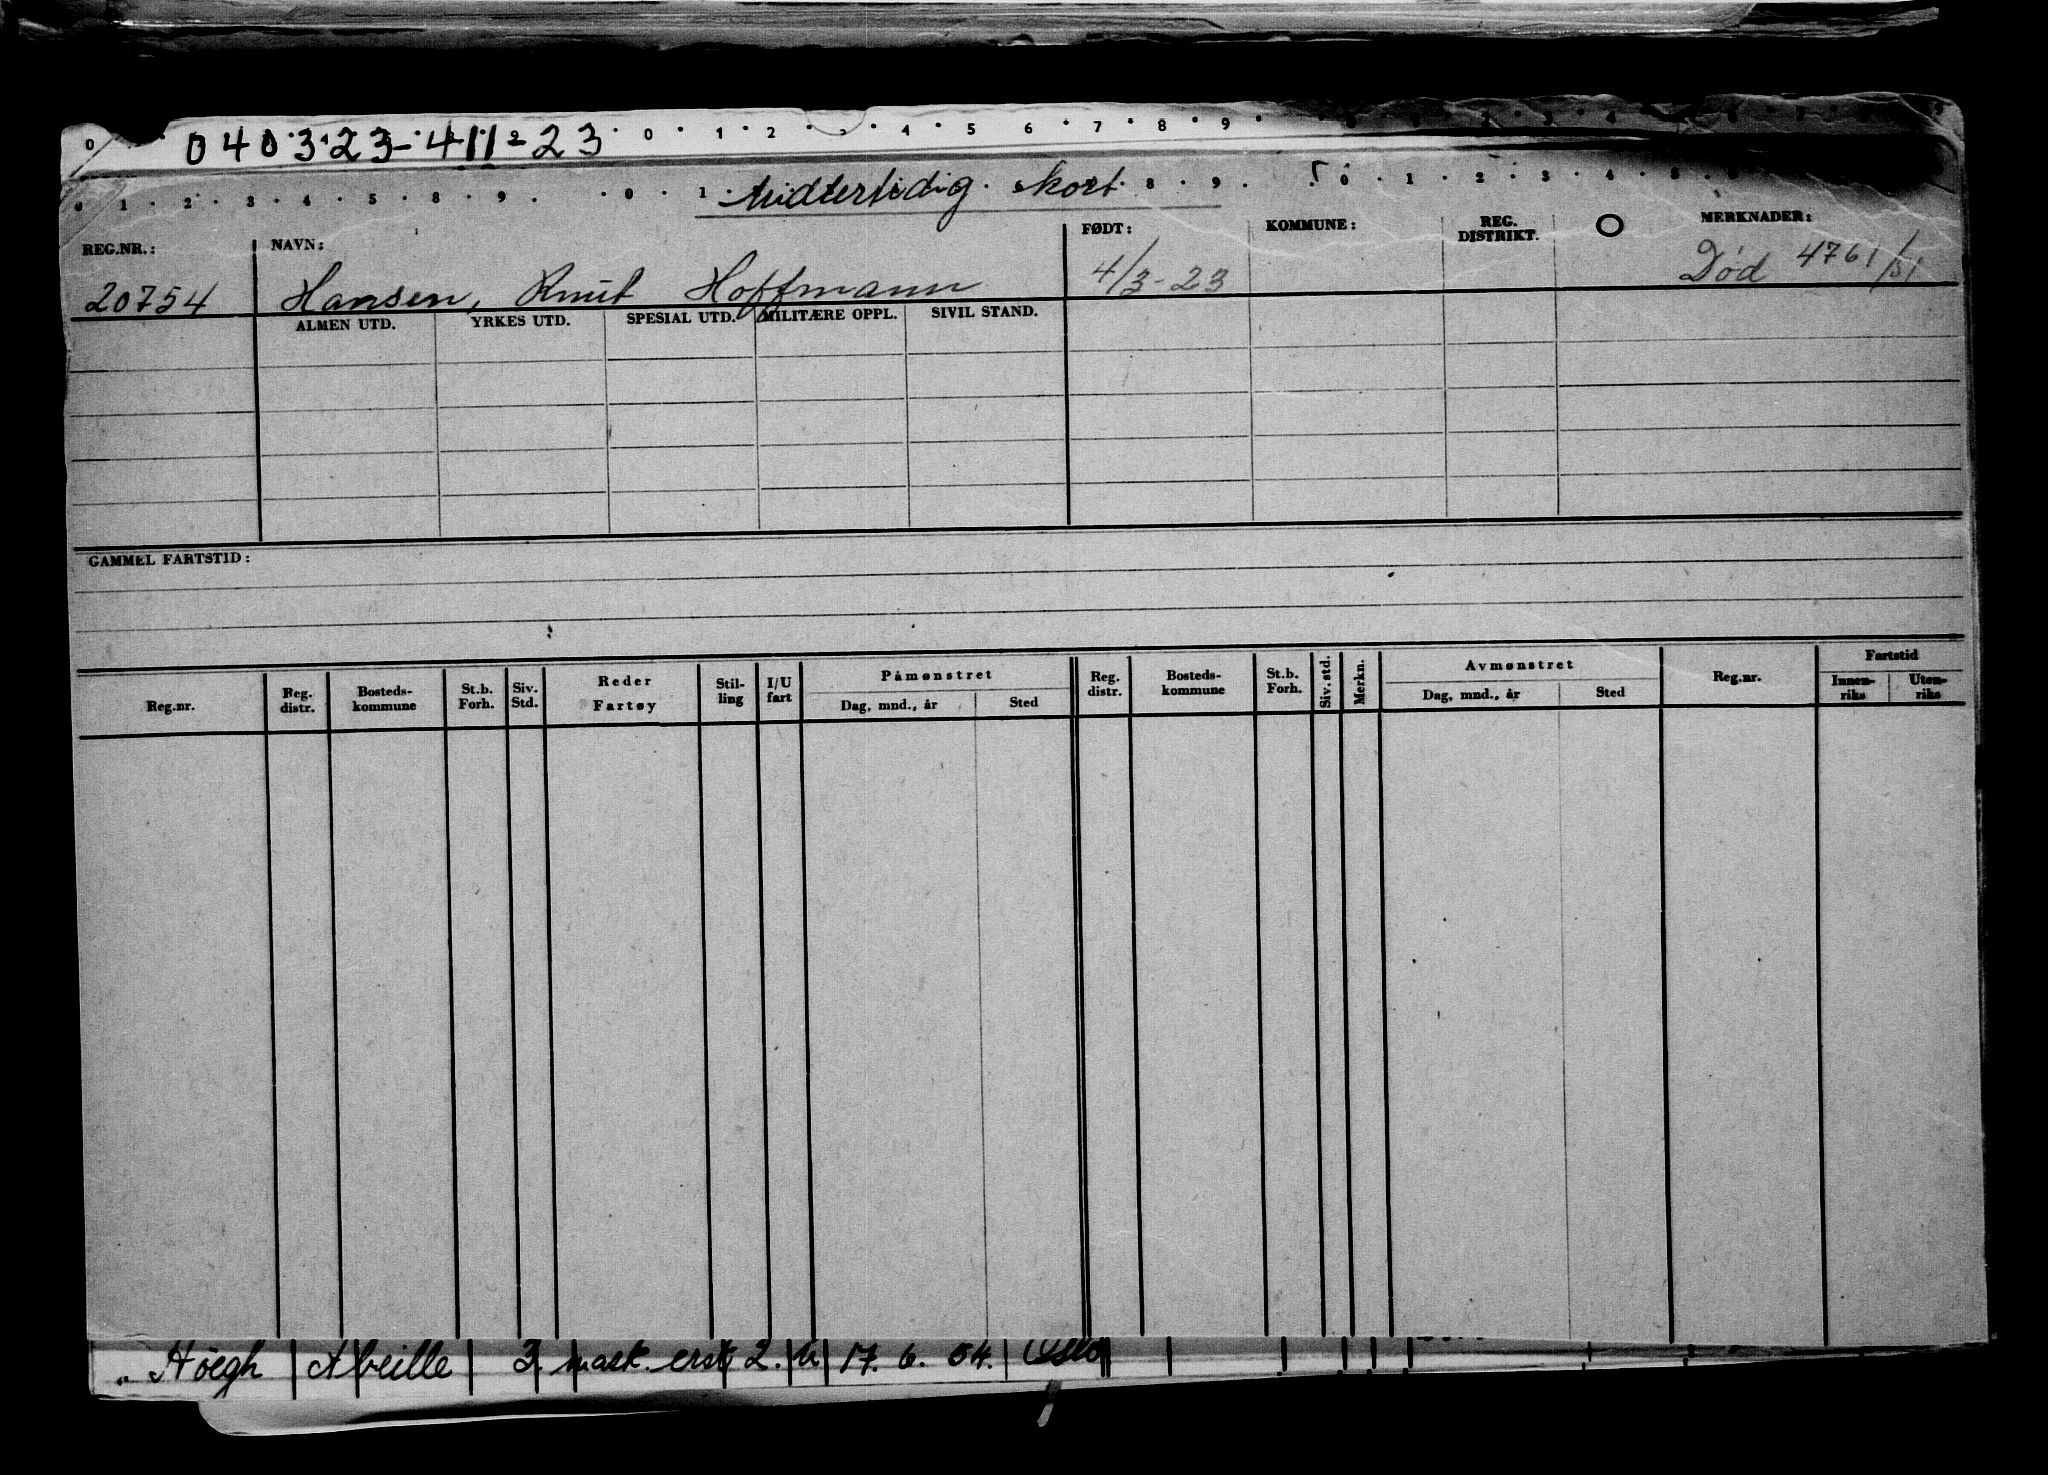 040323-411-23
0 1 2 3 4 5 6 7 8 9
Midlertidig kort
0 1 2 3 4 5 8 9 0 1 8 9 0 1 2 3 4 5
REG.NR.: NAVN: FØDT: KOMMUNE: REG. DISTRIKT. MERKNADER:
20754 Hansen, Knut Hoffmann 4/3-23 Død 4761/51
ALMEN UTD. YRKES UTD. SPESIAL UTD. MILITÆRE OPPL. SIVIL STAND.
GAMMEL FARTSTID:
Reg.nr. Reg. distr. Bosteds-kommune St.b. Forh. Siv. Std. Reder Fartøy Stil-ling I/U fart Påmønstret Dag, mnd., år Sted Reg. distr. Bosteds-kommune St.b. Forh. Siv. std. Merkn. Avmønstret Dag, mnd., år Sted Reg.nr. Fartstid Innen-riks Uten-riks
" Höegh Abeille 3 mask. erst 2. U 17. 6. 54. Oslo